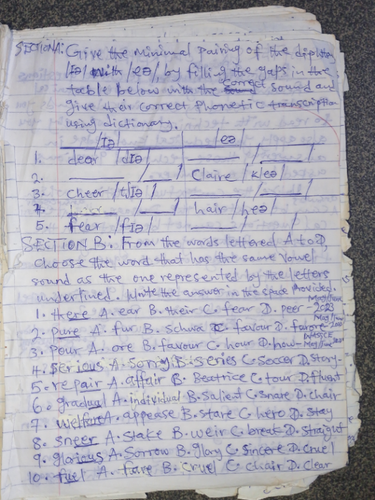 SECTION A: Give the minimal pairing of the diphthong
/Iə/ with /eə/ by filling the gaps in the
table below with the correct sound and
give their correct phonetic transcription
using dictionary.
/Iə/ /eə/
1. dear /dIə/ ___ /___/
2. ___ /___/ Claire /kleə/
3. Cheer /tʃIə/ ___ /___/
4. ___ /___/ hair /heə/
5. fear /fIə/ ___ /___/
SECTION B: From the words lettered A to D,
choose the word that has the same vowel
sound as the one represented by the letters
underlined. Write the answer in the space provided.
1. there A. ear B. their C. fear D. peer
2. pure A. fur B. schwa C. favour D.
3. pour A. are B. favour C. hour D. how
4. Serious A. Sorry B. Series C. Soccer D. Story
5. repair A. affair B. Beatrice C. tour D. fluent
6. gradual A. individual B. Salient C. Snare D. chair
7. A. appease B. Stare C. hero D. Stay
8. sneer A. Stake B. weir C. break D. Straight
9. glorious A. Sorrow B. Glory C. Sincere D. Cruel
10. fuel A. fare B. Cruel C. chair D. Clear